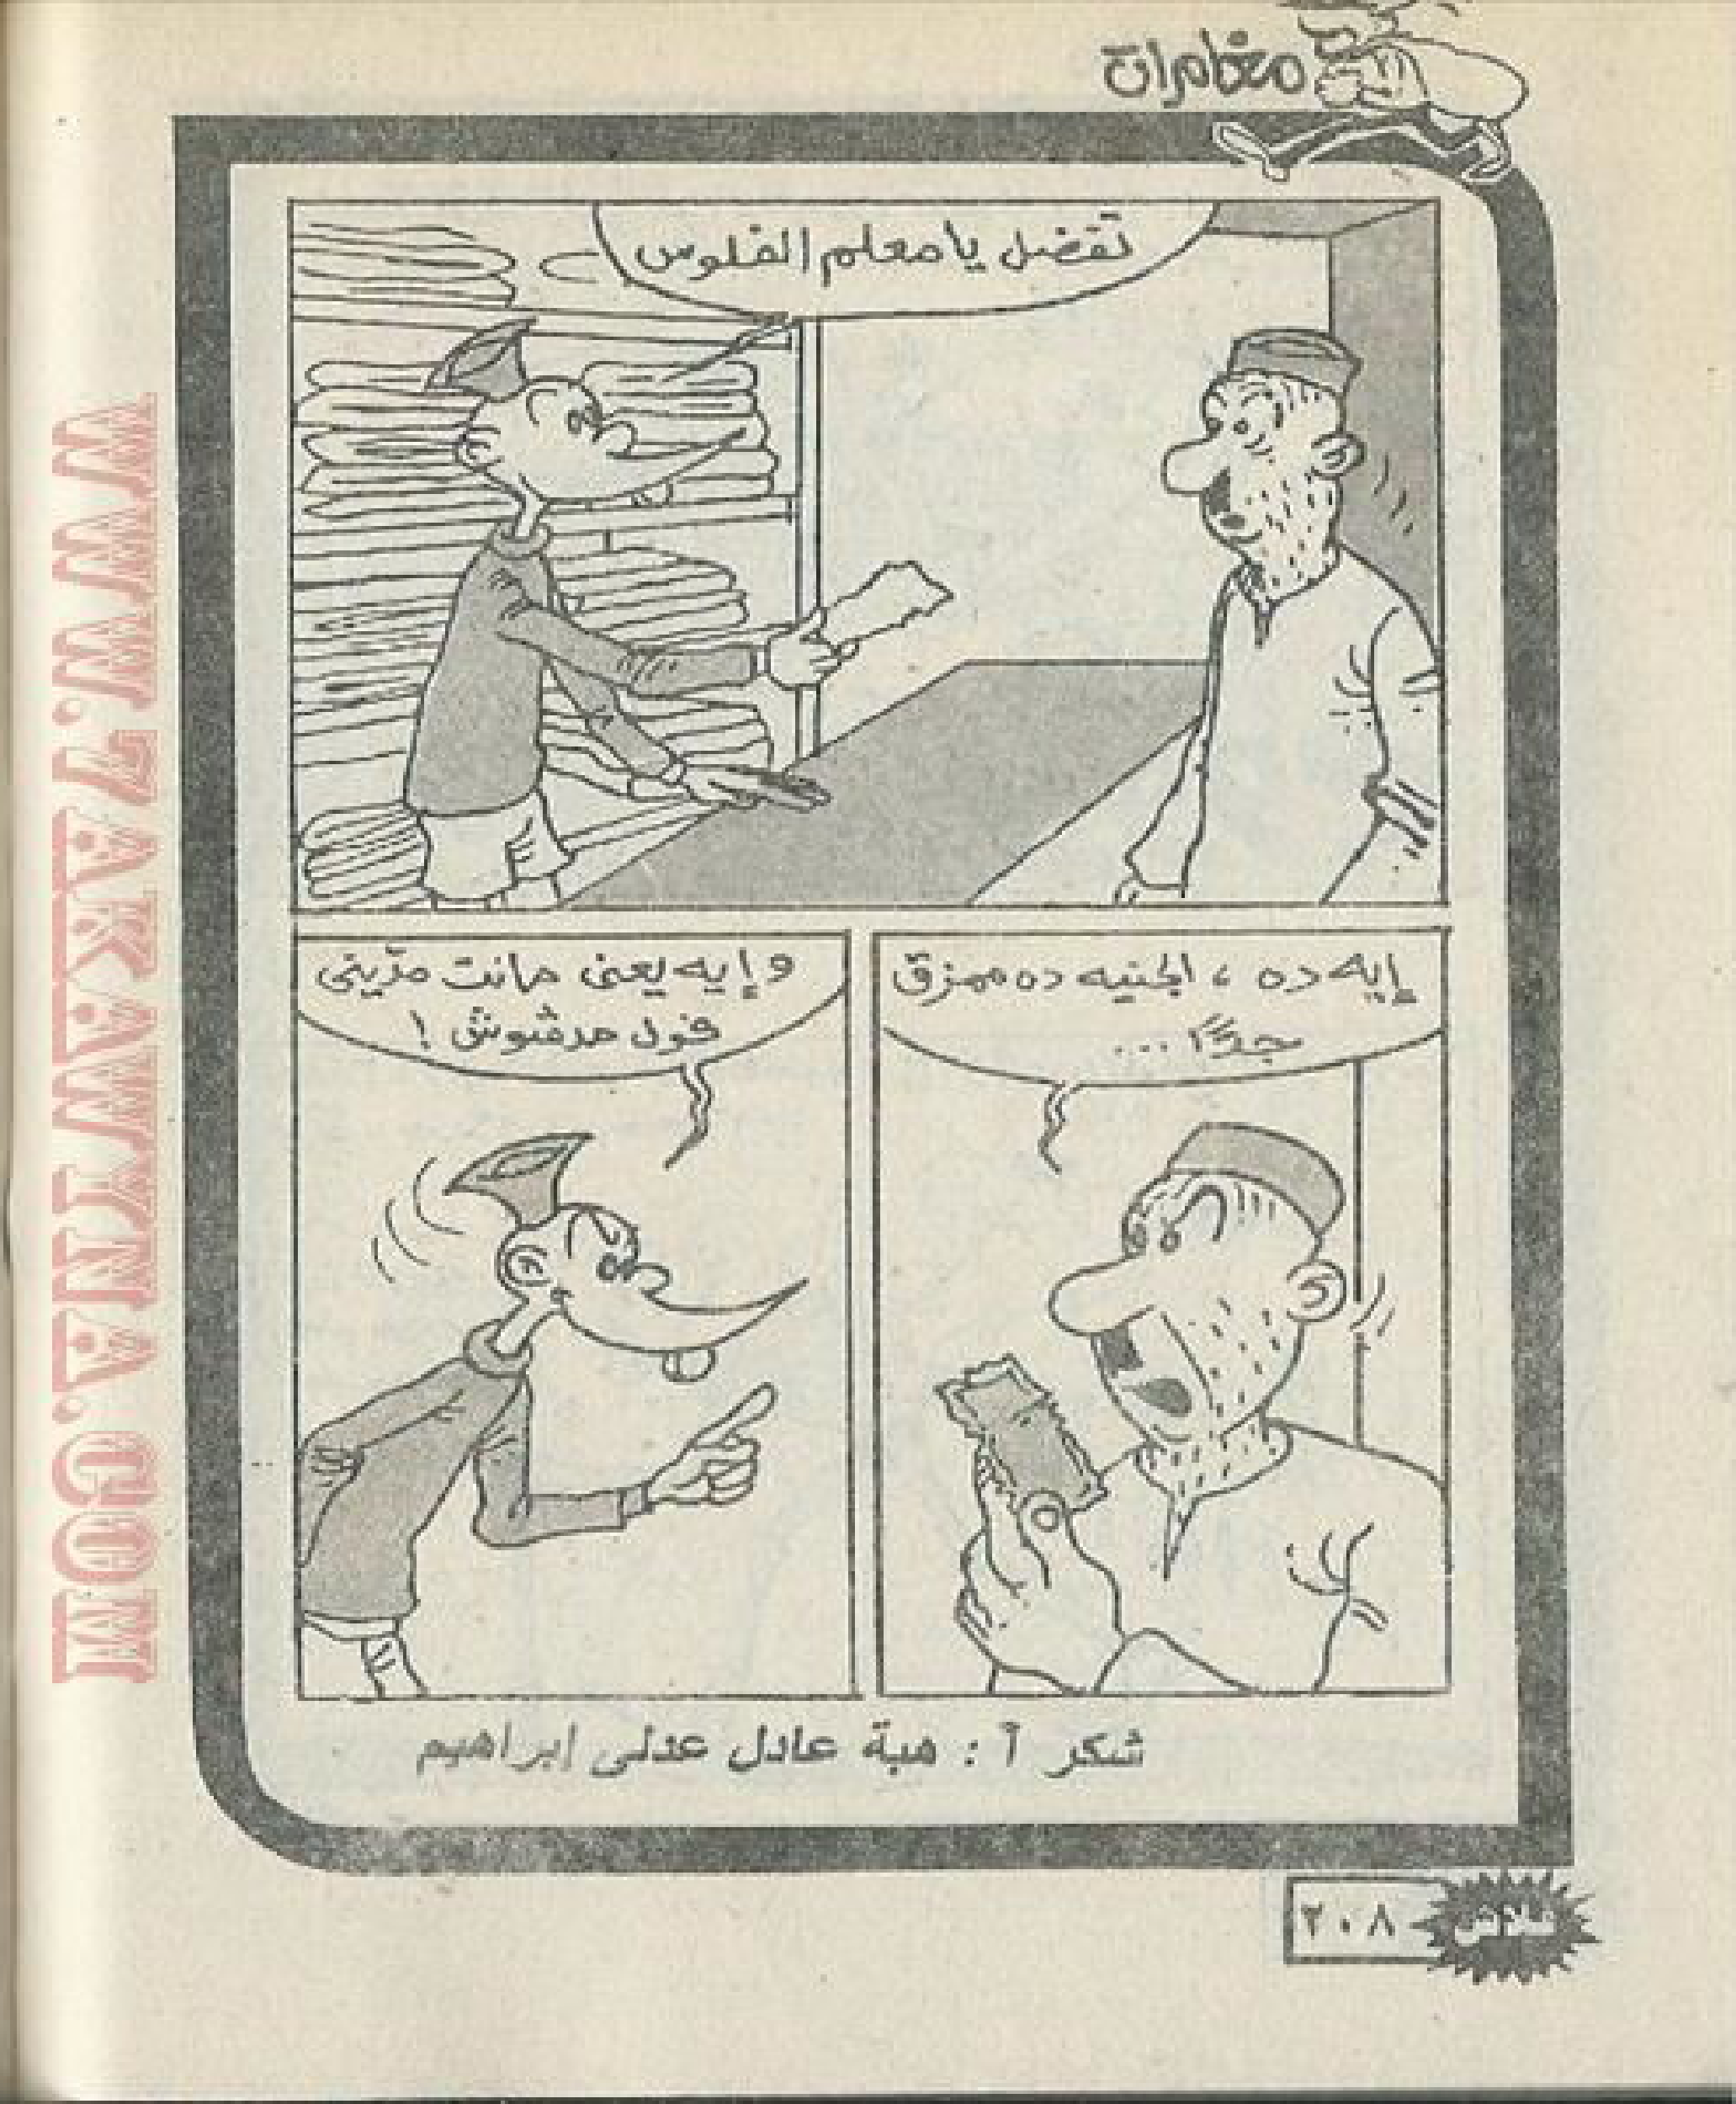 مغامرات
تفضل يا معلم الفلوس
إيه ده ، الجنيه ده ممزق
جدًا ...
وإيه يعنى مانت مدّينى
فول مدشوش !
شكر أ : هبة عادل عدلى إبراهيم
فلاش
٢٠٨
WWW.7AKAWINA.COM